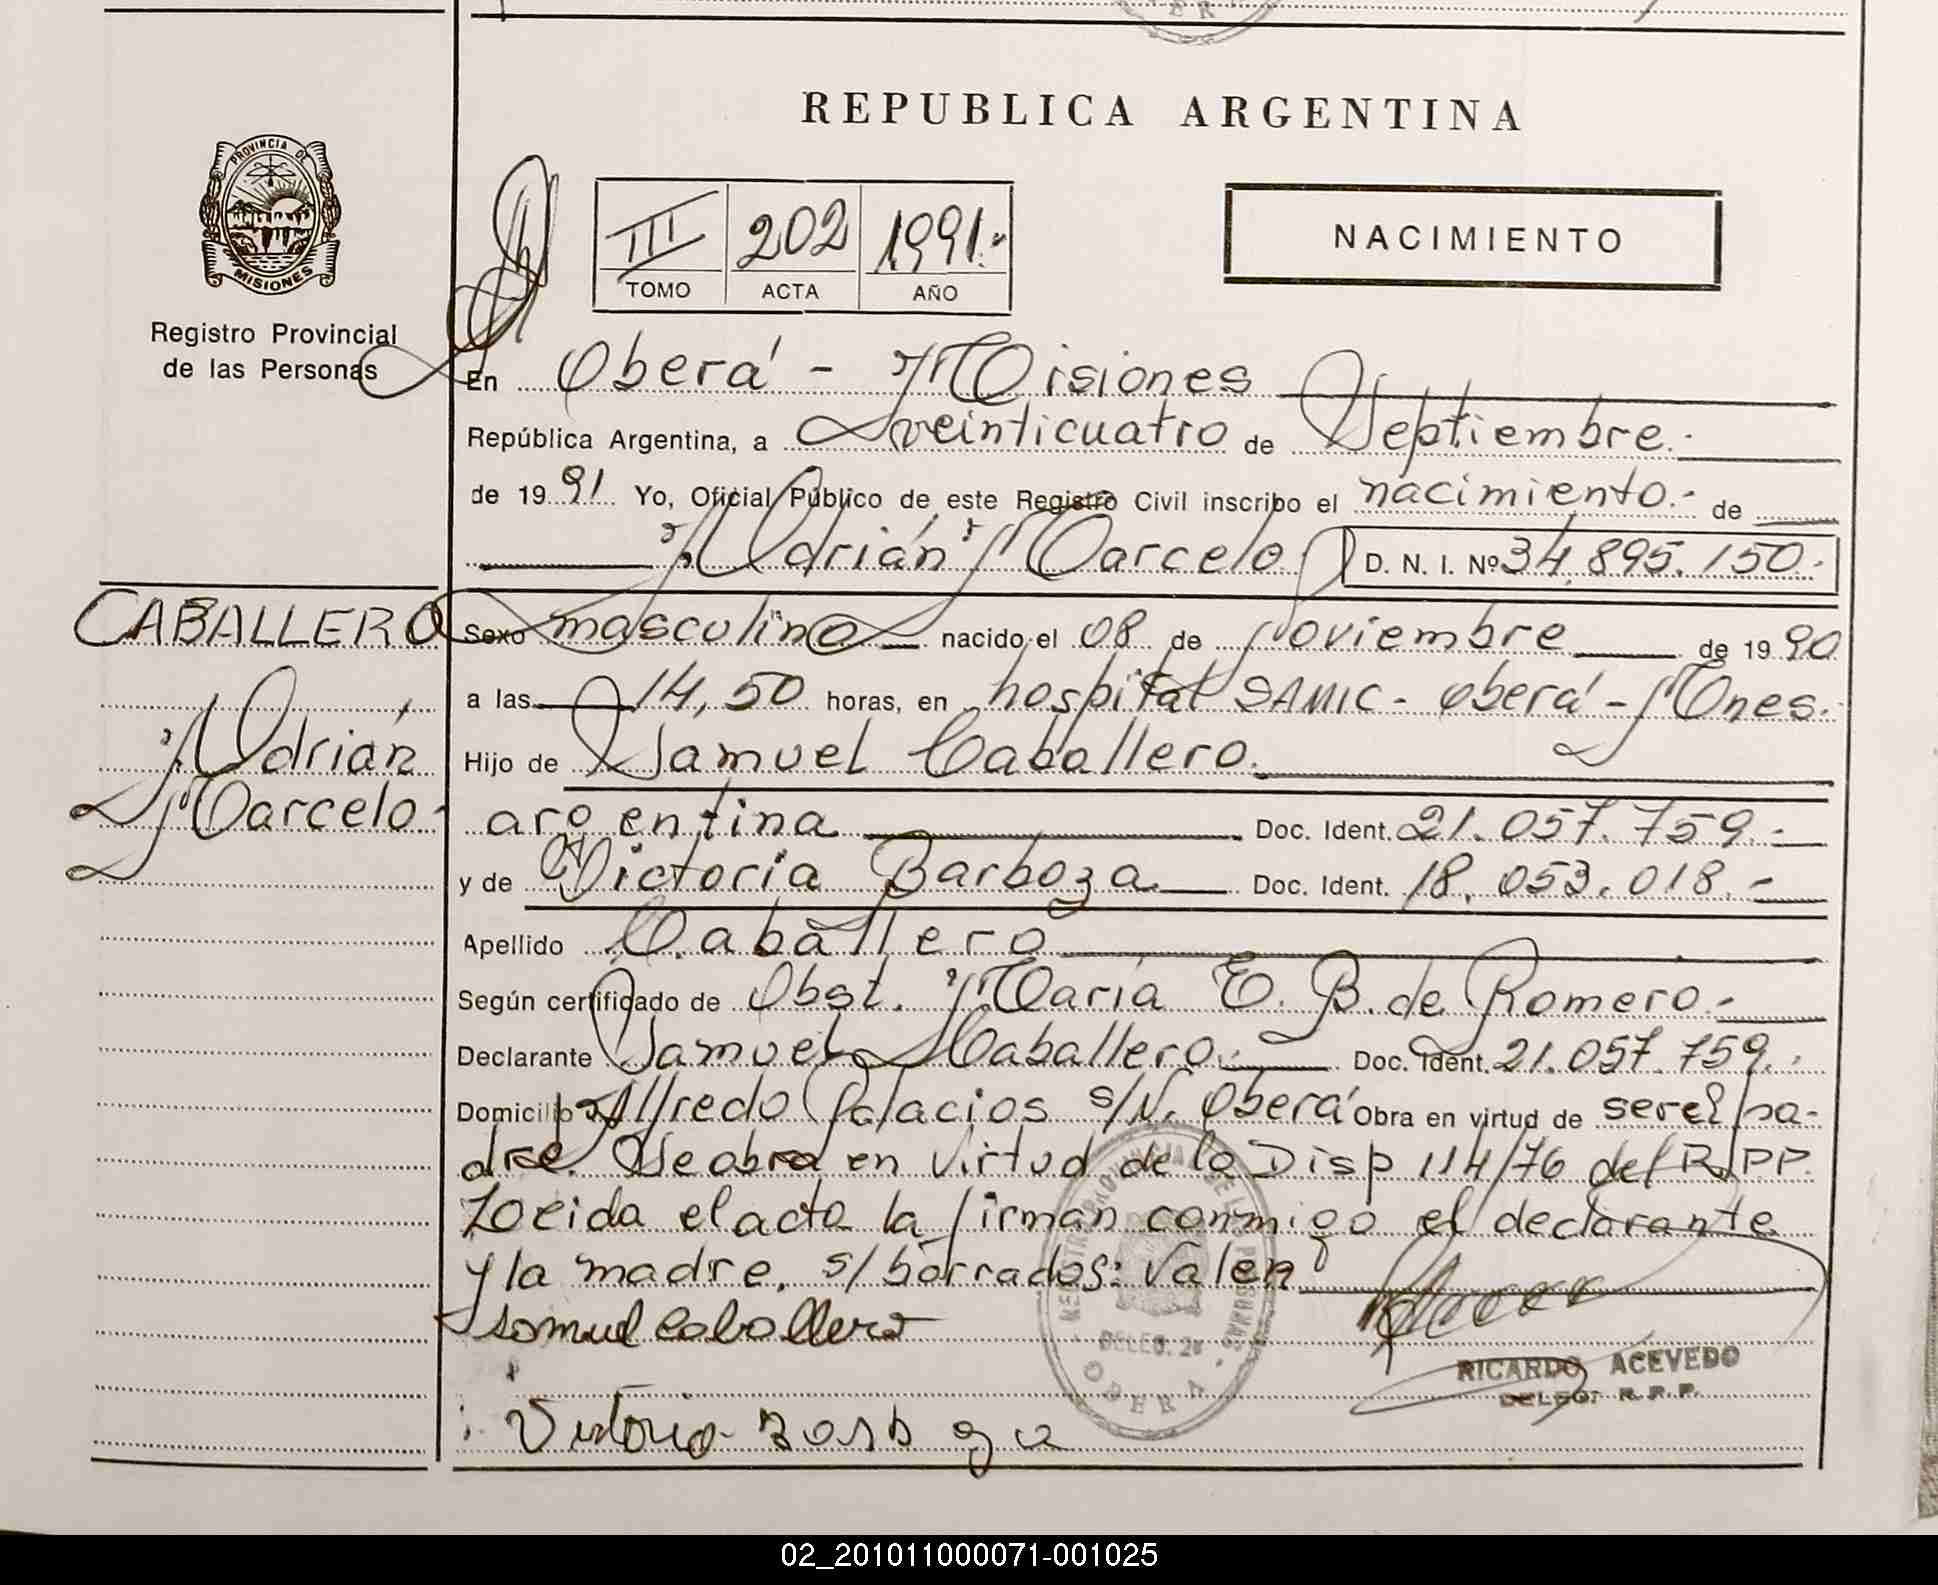 REPUBLICA ARGENTINA
PROVINCIA DE
MISIONES
Registro Provincial
de las Personas
III 202 1991.-
TOMO ACTA AÑO
NACIMIENTO
En Oberá - Misiones
República Argentina, a veinticuatro de Septiembre.-
de 19 91 Yo, Oficial Público de este Registro Civil inscribo el nacimiento.- de
Adrián Marcelo D. N. I. Nº 34.895.150.-
CABALLERO
Adrián
Marcelo.
Sexo masculino nacido el 08 de Noviembre de 19 90
a las 14,50 horas, en hospital SAMIC - Oberá - Mnes.
Hijo de Samuel Caballero.
argentina Doc. Ident. 21.057.759.-
y de Victoria Barboza Doc. Ident. 18.053.018.-
Apellido Caballero
Según certificado de Obst. María E. B. de Romero.-
Declarante Samuel Caballero.- Doc. Ident. 21.057.759.
Domicilio Alfredo Palacios s/N. Oberá Obra en virtud de ser el pa-
dre. Se obra en virtud de la Disp 114/76 del R.P.P.
Leida el acta la firman conmigo el declarante
y la madre. s/ borrados: Valen
Samuel Caballero
REGISTRO PROVINCIAL DE LAS PERSONAS
DELEG. 2
OBERA
RICARDO ACEVEDO
DELEG. R. P. P.
Victoria Barboza
02_201011000071-001025